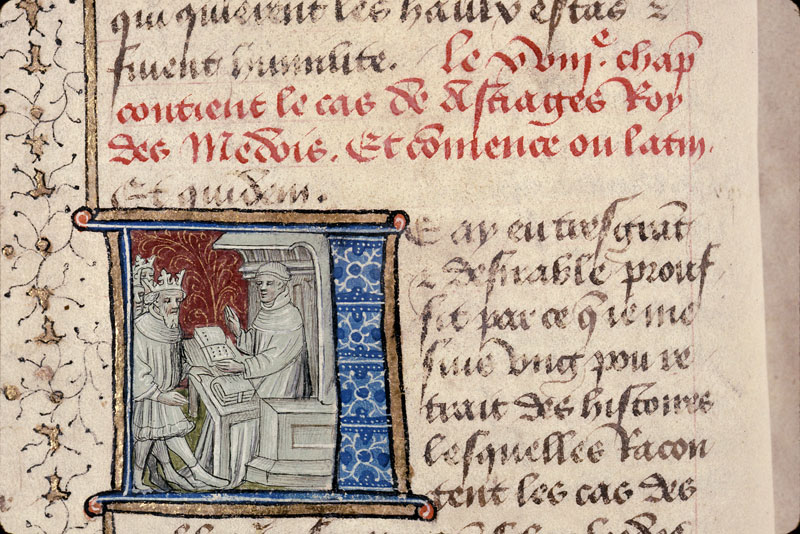 qui quierent les haulx estas &
suiuent humilite. Le xviii.e chap
contient le cas de Astiages Roy
des Medois. Et cōmence ou latin.
Et quidem.
E ay eu tresgrāt
& desirable prouf
fit par ce q̄ ie me
suis vng pou re
trait des histoires
lesquelles Racon
tent les cas des